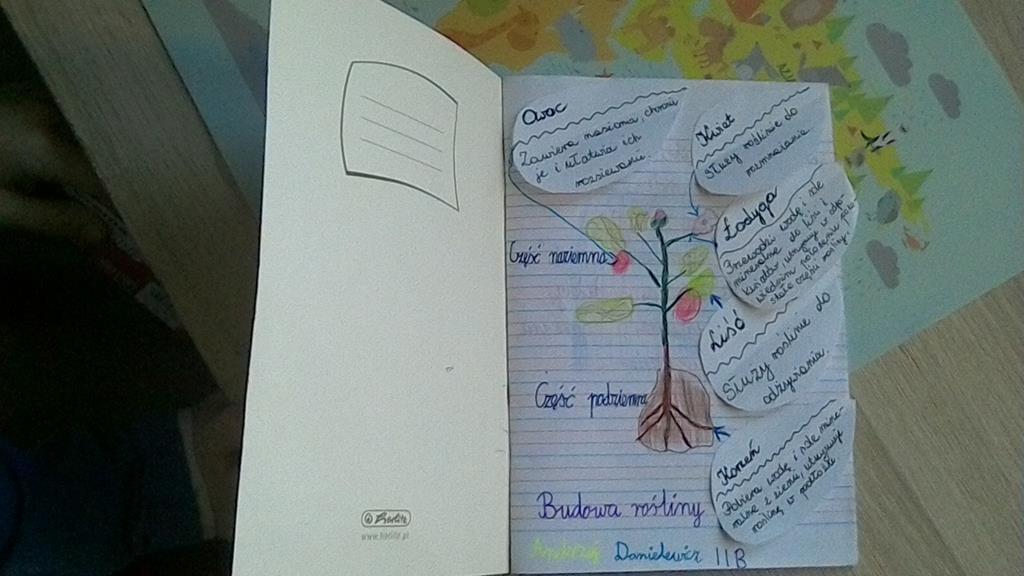 Owoc
Zawiera nasiona, chroni
je i ułatwia ich
rozsiewanie.
Kwiat
Służy roślinie do
rozmnażania.
Łodyga
Przewodzi wodę i sole
mineralne do liści i
kwiatów, utrzymuje w odpo-
wiednim położeniu pozo-
stałe części rośliny.
Część naziemna
Liść
Służy roślinie do
odżywiania.
Część podziemna
Korzeń
Pobiera wodę i sole mine-
ralne z ziemi, utrzymuje
roślinę w podłożu.
Budowa rośliny
Danielewicz IIB
Herlitz
www.herlitz.pl